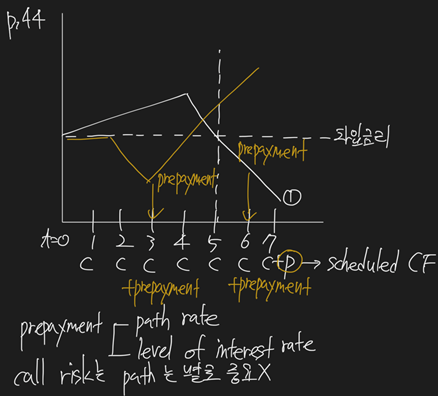 p.44
차입금리
prepayment
prepayment
①
t=0 1 2 3 4 5 6 7
C C C C C C C+P → scheduled CF
+prepayment +prepayment
prepayment [ path rate
level of interest rate
call risk는 path는 별로 중요X